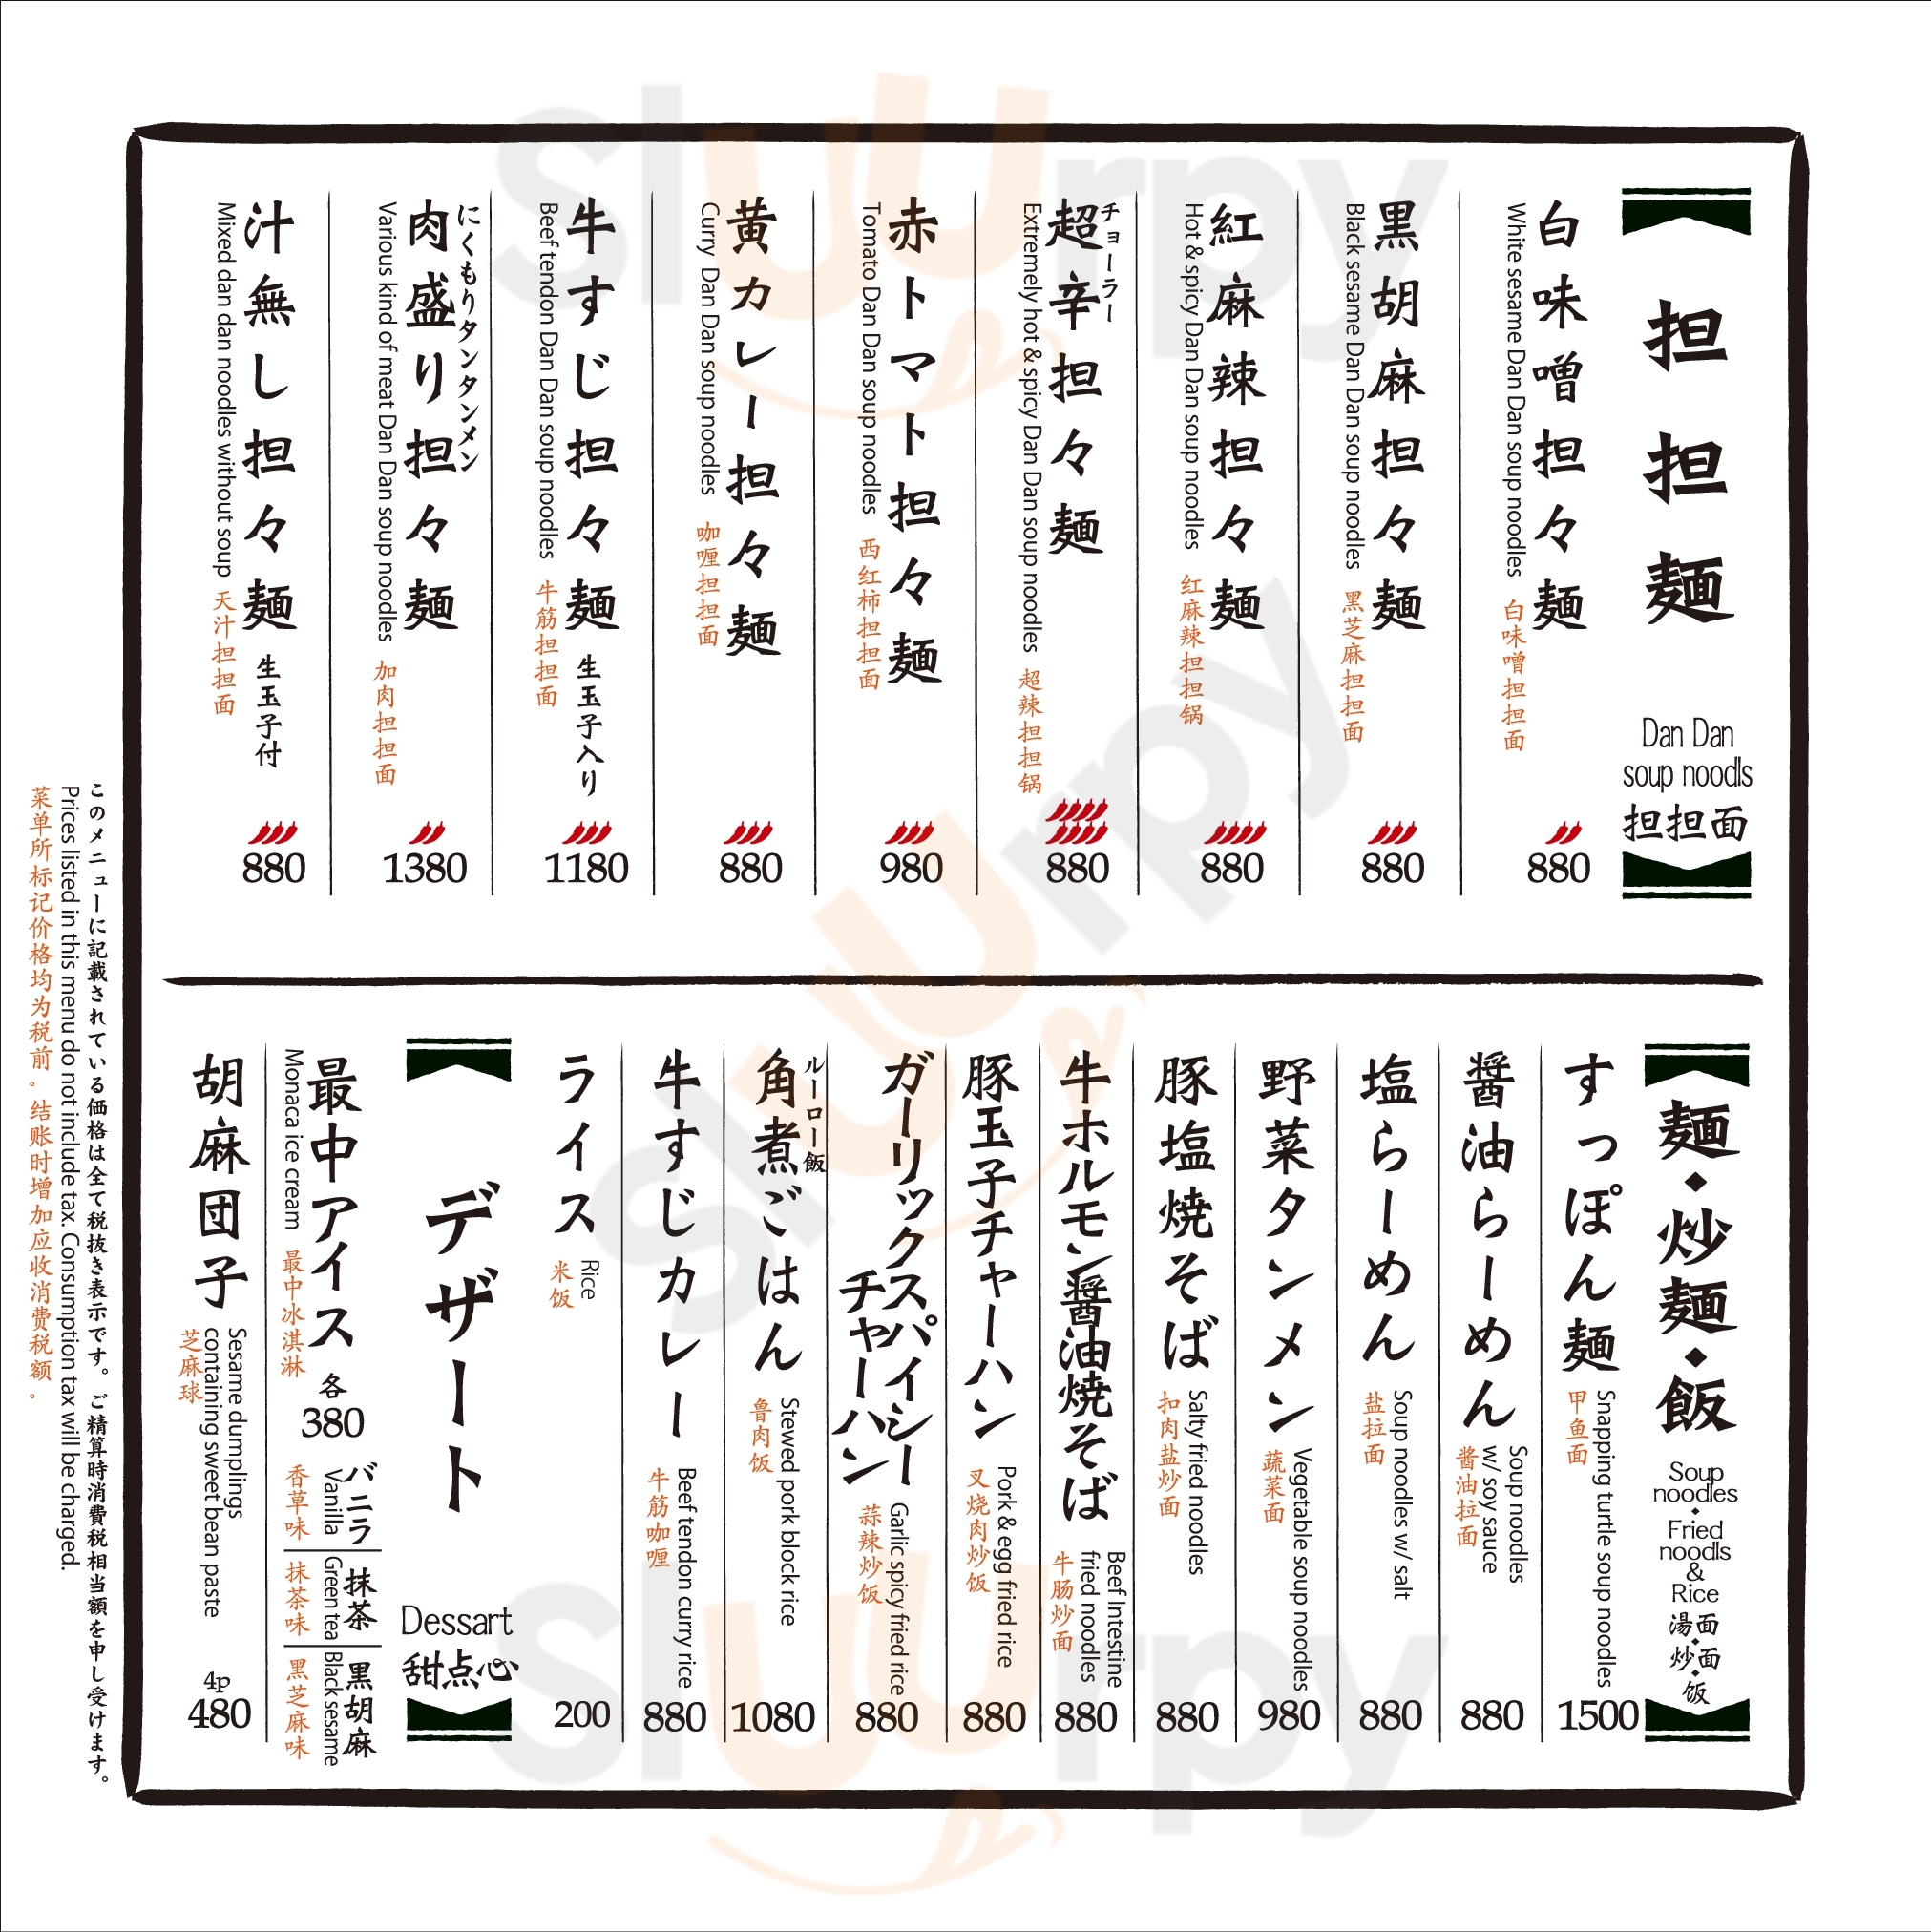 担担麺
Dan Dan
soup noodls
担担面
白味噌担々麺
White sesame Dan Dan soup noodles
白味噌担担面
880
黒胡麻担々麺
Black sesame Dan Dan soup noodles
黑芝麻担担面
880
紅麻辣担々麺
Hot & spicy Dan Dan soup noodles
红麻辣担担锅
880
チョーラー
超辛担々麺
Extremely hot & spicy Dan Dan soup noodles
超辣担担锅
880
赤トマト担々麺
Tomato Dan Dan soup noodles
西红柿担担面
980
黄カレー担々麺
Curry Dan Dan soup noodles
咖喱担担面
880
牛すじ担々麺 生玉子入り
Beef tendon Dan Dan soup noodles
牛筋担担面
1180
にくもりタンタンメン
肉盛り担々麺
Various kind of meat Dan Dan soup noodles
加肉担担面
1380
汁無し担々麺 生玉子付
Mixed dan dan noodles without soup
天汁担担面
880
麺・炒麺・飯
Soup
noodles
・
Fried
noodls
&
Rice
湯面
・
炒面
・
饭
すっぽん麺
Snapping turtle soup noodles
甲鱼面
1500
醤油らーめん
Soup noodles
w/ soy sauce
酱油拉面
880
塩らーめん
Soup noodles w/ salt
盐拉面
880
野菜タンメン
Vegetable soup noodles
蔬菜面
980
豚塩焼そば
Salty fried noodles
扣肉盐炒面
880
牛ホルモン醤油焼そば
Beef Intestine
fried noodles
牛肠炒面
880
豚玉子チャーハン
Pork & egg fried rice
叉烧肉炒饭
880
ガーリックスパイシー
チャーハン
Garlic spicy fried rice
蒜辣炒饭
880
ルーロー飯
角煮ごはん
Stewed pork block rice
鲁肉饭
1080
牛すじカレー
Beef tendon curry rice
牛筋咖喱
880
ライス
Rice
米饭
200
デザート
Dessart
甜点心
最中アイス
Monaca ice cream
最中冰淇淋
各
380
バニラ
Vanilla
香草味
抹茶
Green tea
抹茶味
黒胡麻
Black sesame
黑芝麻味
胡麻団子
Sesame dumplings
containing sweet bean paste
芝麻球
4p
480
このメニューに記載されている価格は全て税抜き表示です。ご精算時消費税相当額を申し受けます。
Prices listed in this menu do not include tax. Consumption tax will be charged.
菜单所标记价格均为税前。结账时增加应收消费税额。
Sluurpy
Sluurpy
Sluurpy